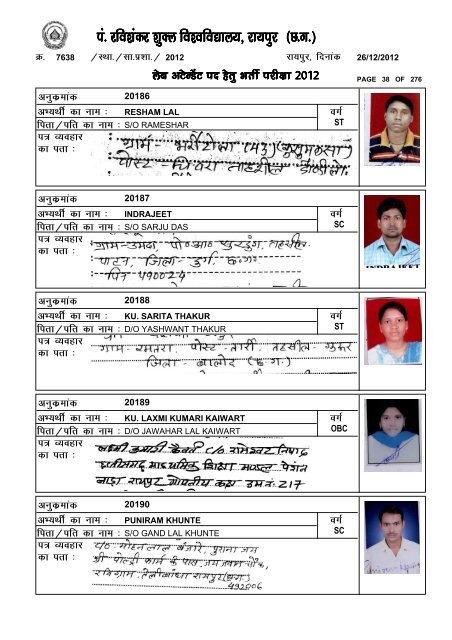 पं. रविशंकर शुक्ल विश्वविद्यालय, रायपुर (छ.ग.)
क्र. 7638 /स्था./सा.प्रशा./ 2012 रायपुर, दिनांक 26/12/2012
लेब अटेन्डेंट पद हेतु भर्ती परीक्षा 2012
PAGE 38 OF 276
अनुकमांक 20186
अभ्यर्थी का नाम : RESHAM LAL वर्ग
पिता/पति का नाम : S/O RAMESHAR ST
पत्र व्यवहार ग्राम
का पता : पोस्ट
अनुकमांक 20187
अभ्यर्थी का नाम : INDRAJEET वर्ग
पिता/पति का नाम : S/O SARJU DAS SC
पत्र व्यवहार ग्राम-उमदा, पो०आ०
का पता : पाटन, जिला-दुर्ग, छ०ग०
पिन 490024
INDRAJEET
अनुकमांक 20188
अभ्यर्थी का नाम : KU. SARITA THAKUR वर्ग
पिता/पति का नाम : D/O YASHWANT THAKUR ST
पत्र व्यवहार ग्राम-रमतरा, पोस्ट-तार्री, तहसील-गुरूर
का पता : जिला-बालोद (छ.ग.)
अनुकमांक 20189
अभ्यर्थी का नाम : KU. LAXMI KUMARI KAIWART वर्ग
पिता/पति का नाम : D/O JAWAHAR LAL KAIWART OBC
पत्र व्यवहार लक्ष्मी कुमारी कैवर्त c/o रामेश्वर निषाद
का पता : छत्तीसगढ़ माध्यमिक शिक्षा मण्डल पेंशन
बाड़ा रायपुर गोपनीय कक्ष 217
अनुकमांक 20190
अभ्यर्थी का नाम : PUNIRAM KHUNTE वर्ग
पिता/पति का नाम : S/O GAND LAL KHUNTE SC
पत्र व्यवहार c/o मोहन लाल बंजारे, पुराना जय
का पता : श्री पोल्ट्री फार्म के पास, जय चौक,
रविग्राम, तेलीबांधा रायपुर (छ.ग.)
492006